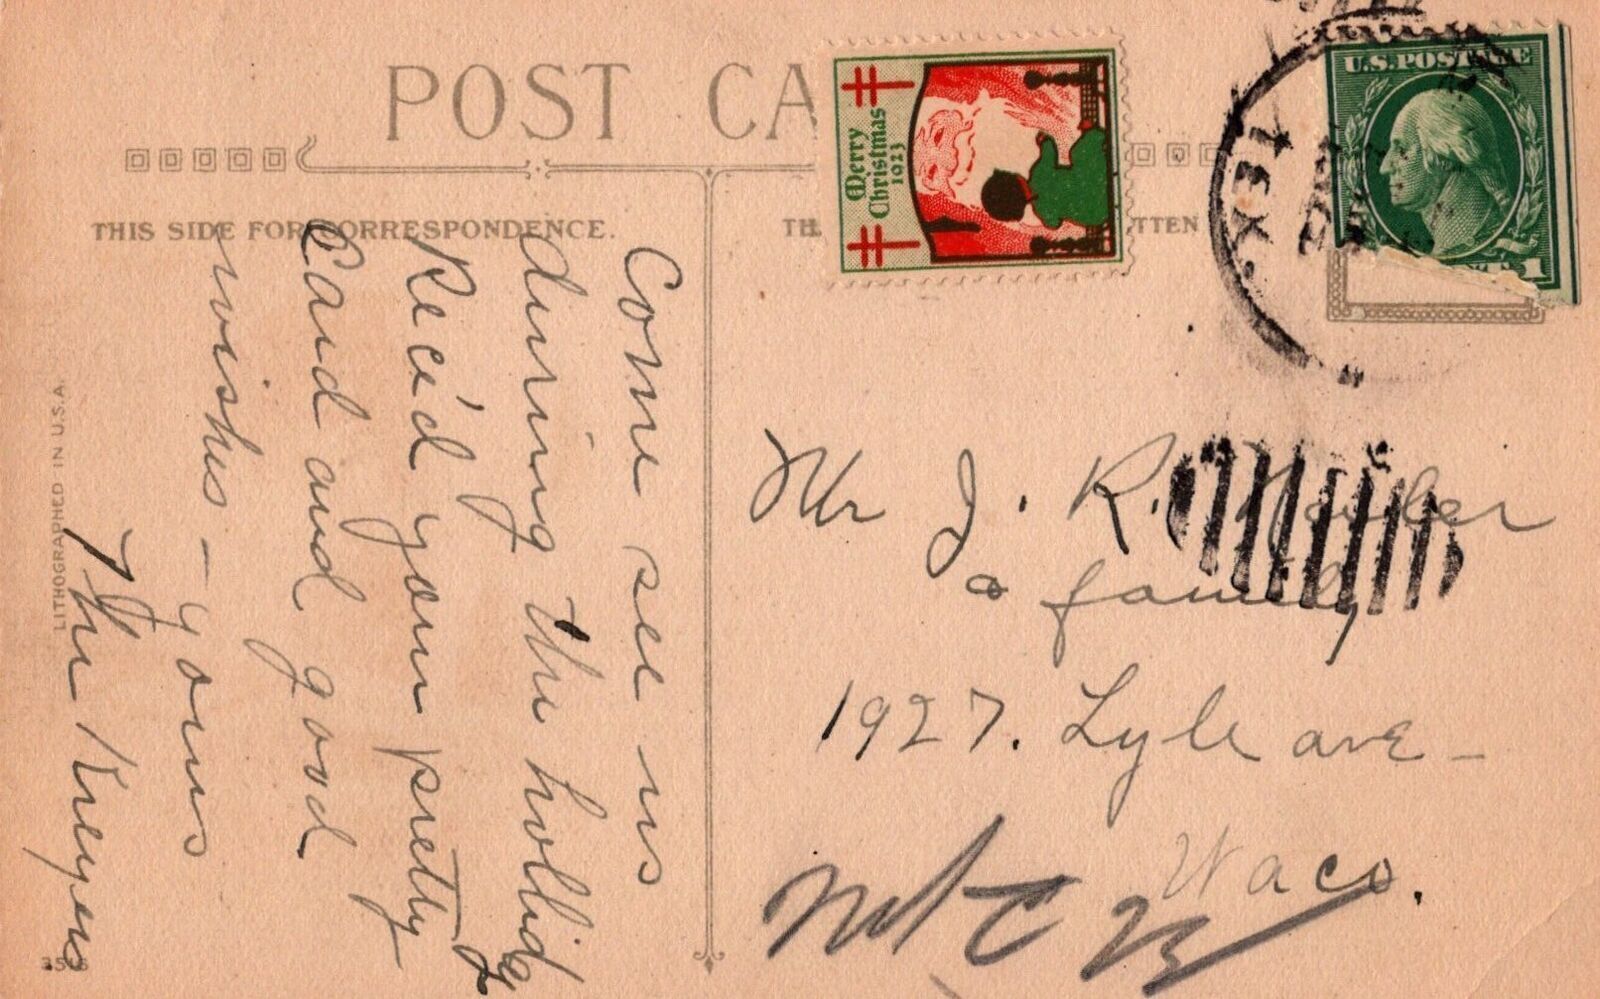 POST CA
THIS SIDE FOR CORRESPONDENCE.
TH
TTEN
Merry
Christmas
1923
TEX.
U.S. POSTAGE
1
Come see us
during the hollidays
Rec'd your pretty
Card and good
wishes — yours
The Kreyers
Mr J. R.
& family
1927. Lyle ave —
Waco.
LITHOGRAPHED IN U.S.A.